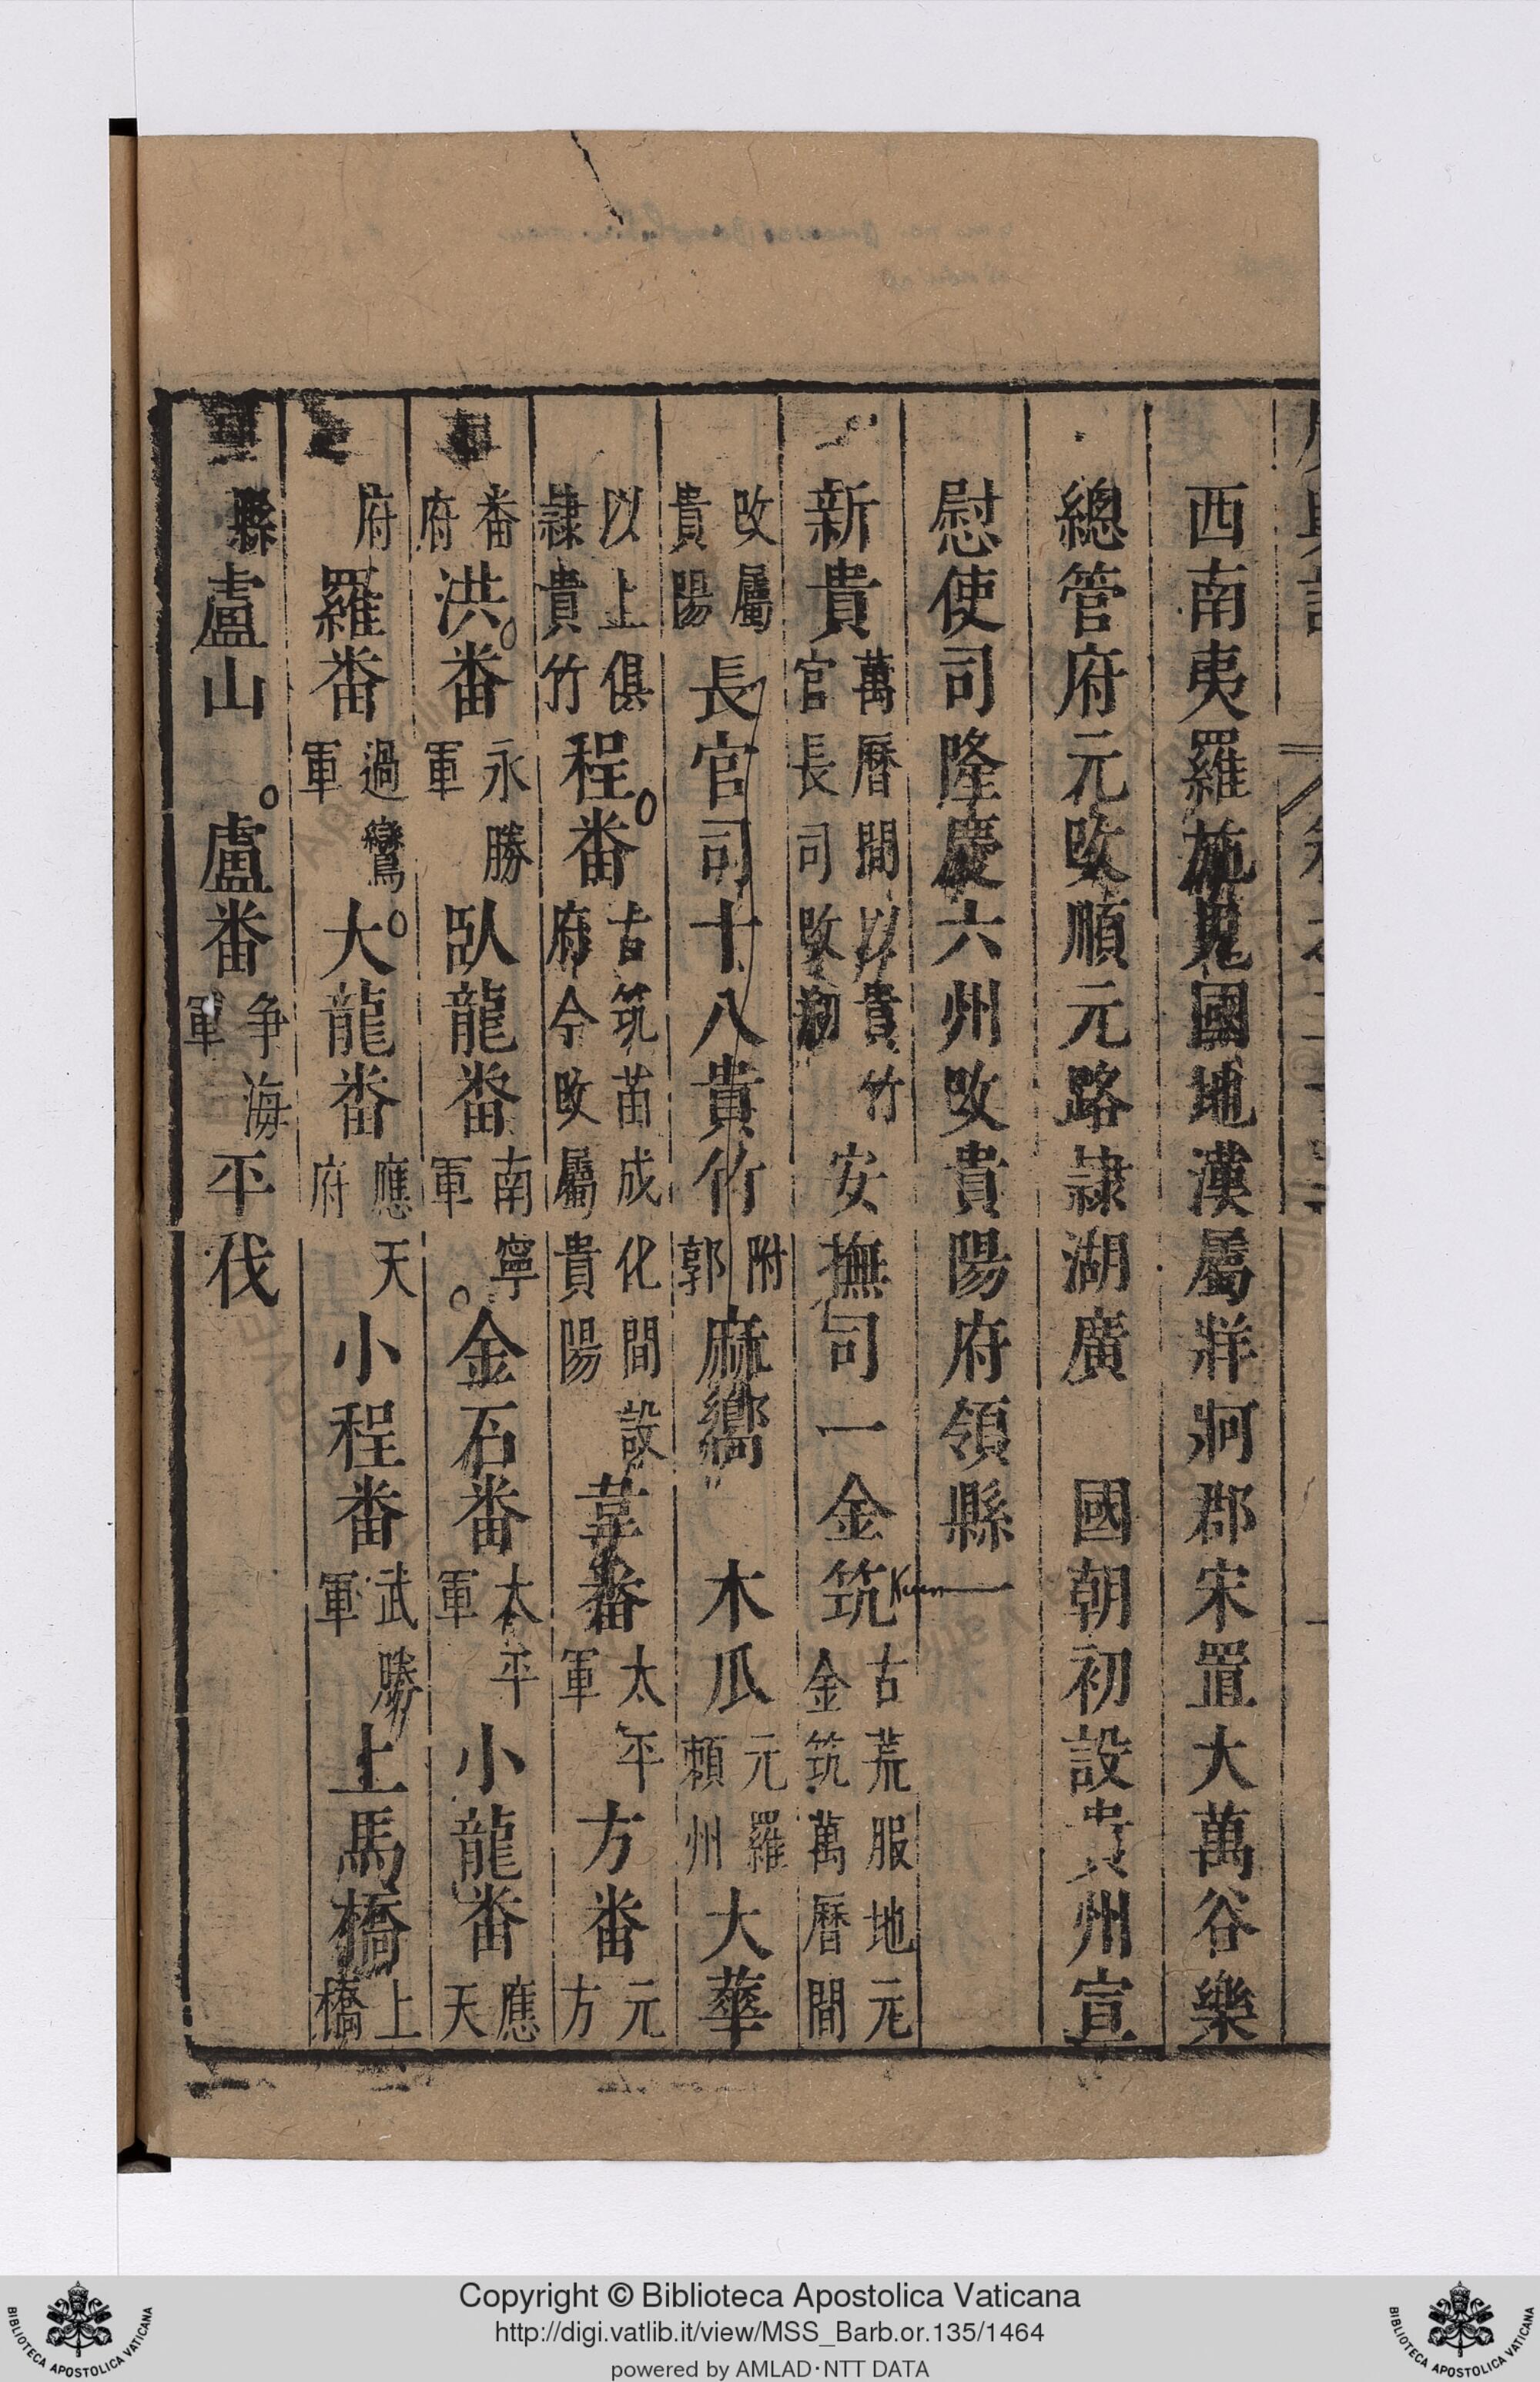 西南夷羅施鬼國地漢屬牂牁郡宋置大萬谷樂
總管府元改順元路隷湖廣 國朝初設貴州宣
慰使司隆慶六州改貴陽府領縣一
新貴萬曆間以貴竹官長司改初安撫司一金筑古荒服地元金筑萬曆間
Kuen
改屬貴陽長官司十八貴竹附郭麻嚮 木瓜元羅賴州大華
以上俱隷貴竹程番古筑苗成化間設府今改屬貴陽韋番太平軍方番元方
番府洪番永勝軍臥龍番南寧軍金石番太平軍小龍番應天
府羅番遏鸞軍大龍番應天府小程番武勝軍上馬橋上橋
縣盧山 盧番爭海軍平伐
Copyright © Biblioteca Apostolica Vaticana
http://digi.vatlib.it/view/MSS_Barb.or.135/1464
powered by AMLAD·NTT DATA
BIBLIOTECA APOSTOLICA VATICANA
BIBLIOTECA APOSTOLICA VATICANA